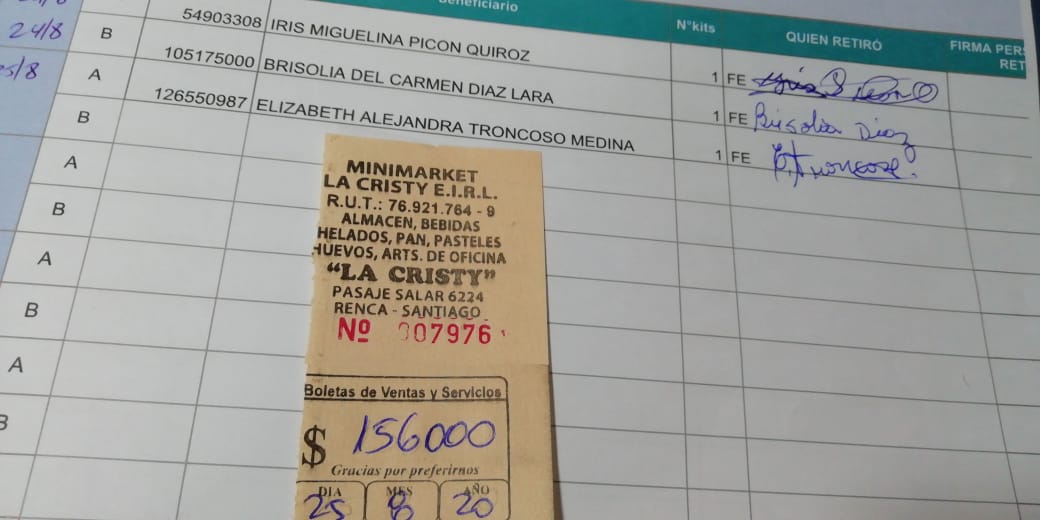 Beneficiario N°kits QUIEN RETIRÓ FIRMA PER
RET
24/8 B 54903308 IRIS MIGUELINA PICON QUIROZ 1 FE
5/8 A 105175000 BRISOLIA DEL CARMEN DIAZ LARA 1 FE Brisolia Diaz
B 126550987 ELIZABETH ALEJANDRA TRONCOSO MEDINA 1 FE E. Troncoso.
A
B
A
B
A
B
MINIMARKET
LA CRISTY E.I.R.L.
R.U.T.: 76.921.764 - 9
ALMACEN, BEBIDAS
HELADOS, PAN, PASTELES
HUEVOS, ARTS. DE OFICINA
“LA CRISTY”
PASAJE SALAR 6224
RENCA - SANTIAGO
Nº 007976
Boletas de Ventas y Servicios
$ 156000
Gracias por preferirnos
DIA MES AÑO
25 8 20